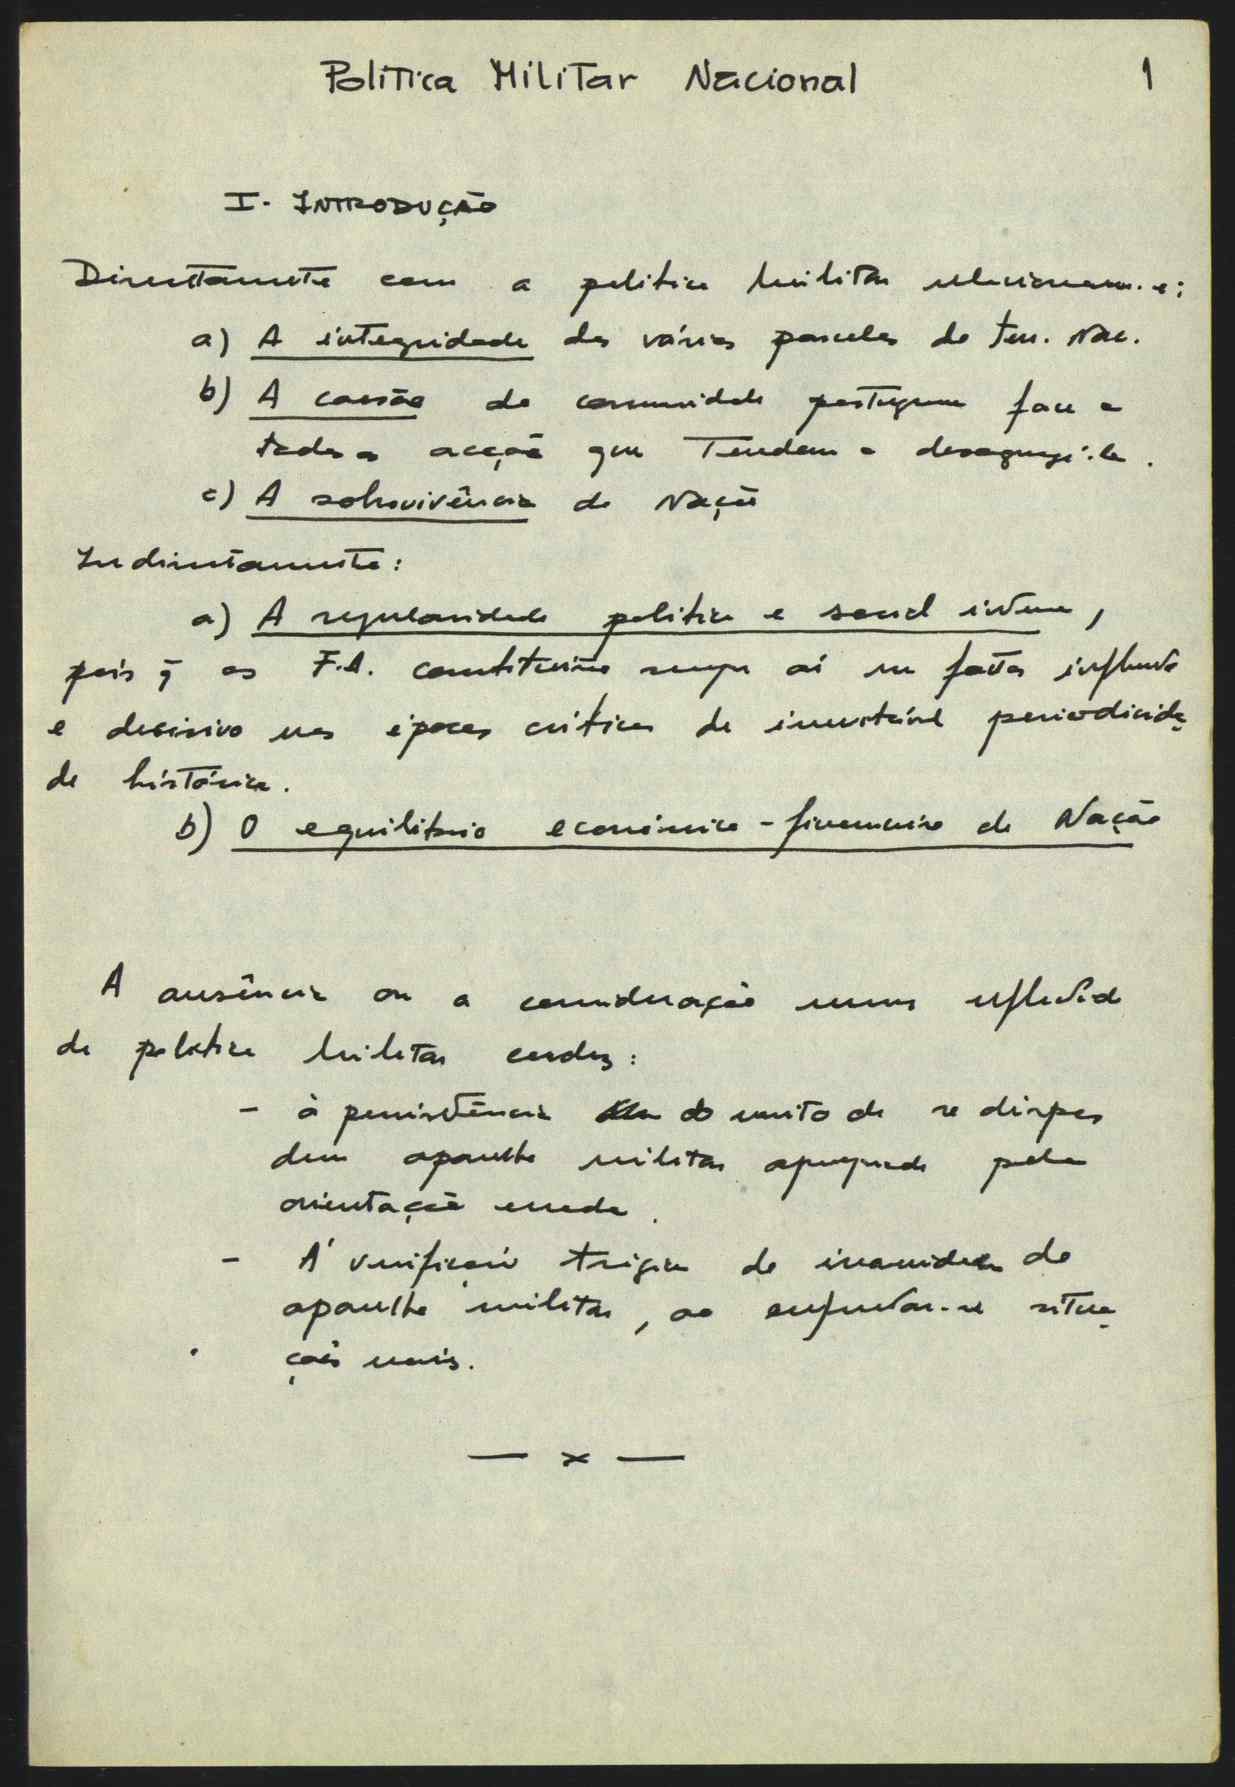 Politica Militar Nacional 1
I - INTRODUÇÃO
Directamente com a politica militar relacionam-se:
a) A integridade das várias parcelas do terr. Nac.
b) A coesão da comunidade portuguesa face a
todas as acções que Tendem a desagregá-la.
c) A sobrevivência da Nação
Indirectamente:
a) A regularidade politica e social interna,
pois q̃ as F.A. constituirão sempre aí um factor influente
e decisivo nas épocas criticas de inevitável periodicida
de histórica.
b) O equilibrio económico-financeiro da Nação
A ausência ou a consideração menos reflectida
da politica militar conduz:
- à persistência do mito de se dispor
dum aparelho militar apropriado pela
orientação errada.
- À verificação trágica da inanidade do
aparelho militar, ao enfrentar-se situa
ções reais.
— x —